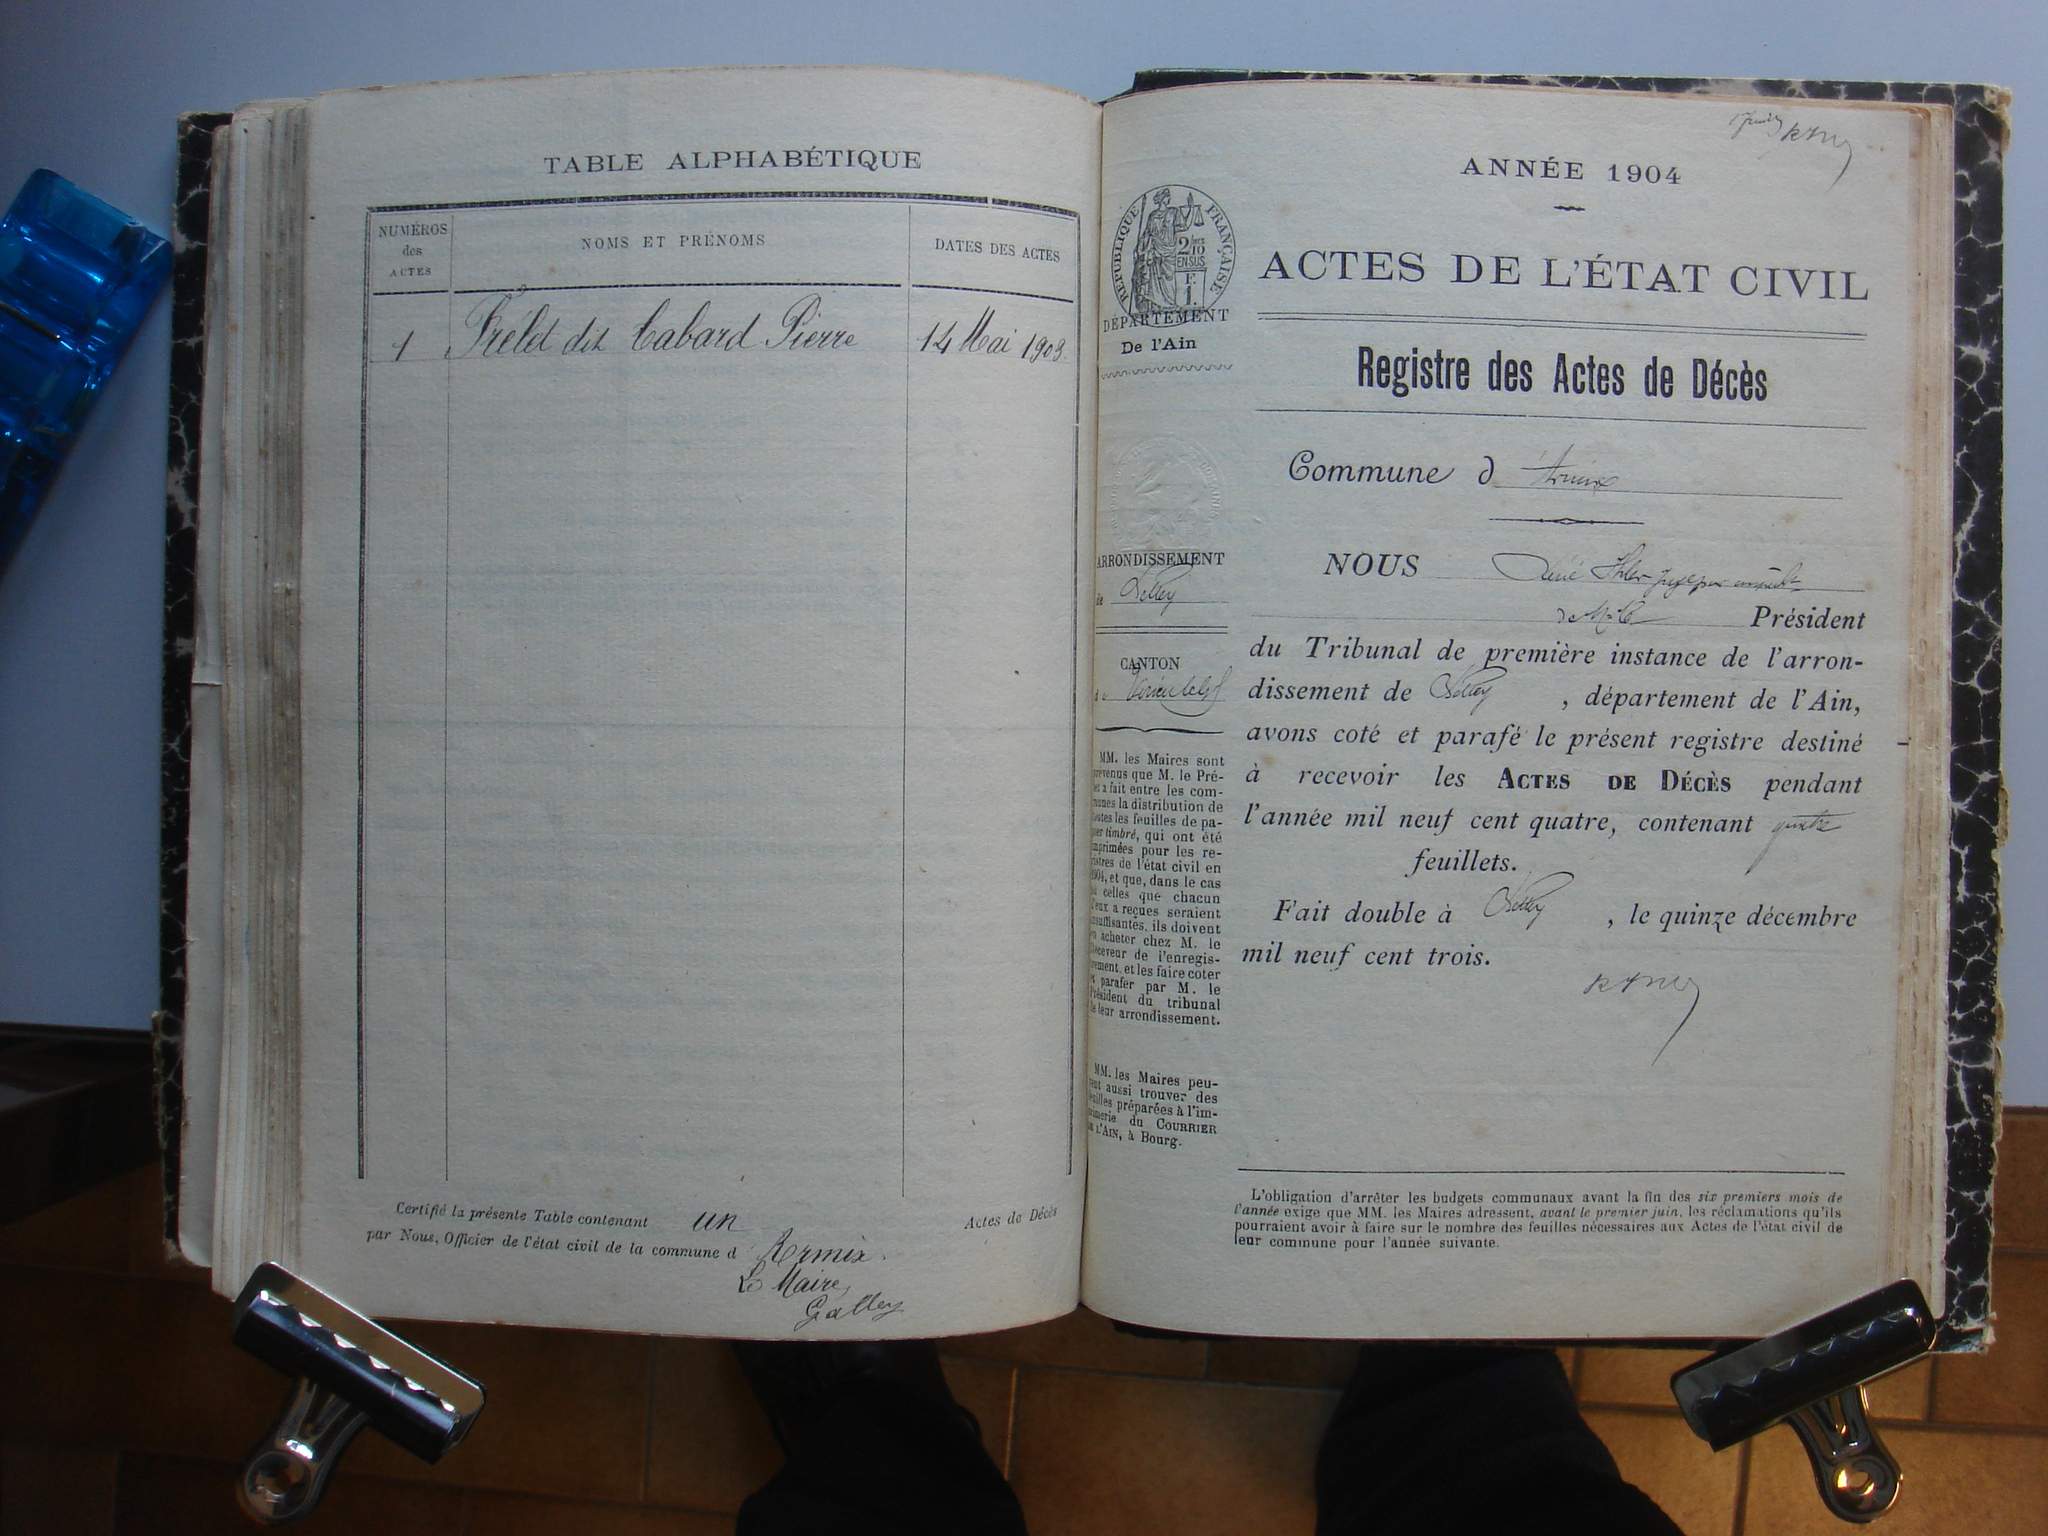 TABLE ALPHABÉTIQUE
NUMÉROS
des
ACTES
NOMS ET PRÉNOMS
DATES DES ACTES
1 Frélet dit Cabard Pierre 14 Mai 1903
Certifié la présente Table contenant un
par Nous, Officier de l'état civil de la commune d Armix
Le Maire,
Gallay
Actes de Décès
ANNÉE 1904
RÉPUBLIQUE FRANÇAISE
2/10
EN SUS
F.
1.
ACTES DE L'ÉTAT CIVIL
DÉPARTEMENT
De l'Ain
Registre des Actes de Décès
Commune d Armix
ARRONDISSEMENT
de Belley
CANTON
MM. les Maires sont
prévenus que M. le Pré-
fet a fait entre les com-
munes la distribution de
toutes les feuilles de pa-
pier timbré, qui ont été
imprimées pour les re-
gistres de l'état civil en
1904, et que, dans le cas
où celles que chacun
d'eux a reçues seraient
insuffisantes, ils doivent
en acheter chez M. le
Receveur de l'enregis-
trement, et les faire coter
et parafer par M. le
Président du tribunal
de leur arrondissement.
MM. les Maires peu-
vent aussi trouver des
feuilles préparées à l'im-
primerie du COURRIER
DE L'AIN, à Bourg.
NOUS René
Président
du Tribunal de première instance de l'arron-
dissement de Belley, département de l'Ain,
avons coté et parafé le présent registre destiné
à recevoir les ACTES DE DÉCÈS pendant
l'année mil neuf cent quatre, contenant quatre
feuillets.
Fait double à Belley, le quinze décembre
mil neuf cent trois.
L'obligation d'arrêter les budgets communaux avant la fin des six premiers mois de
l'année exige que MM. les Maires adressent, avant le premier juin, les réclamations qu'ils
pourraient avoir à faire sur le nombre des feuilles nécessaires aux Actes de l'état civil de
leur commune pour l'année suivante.